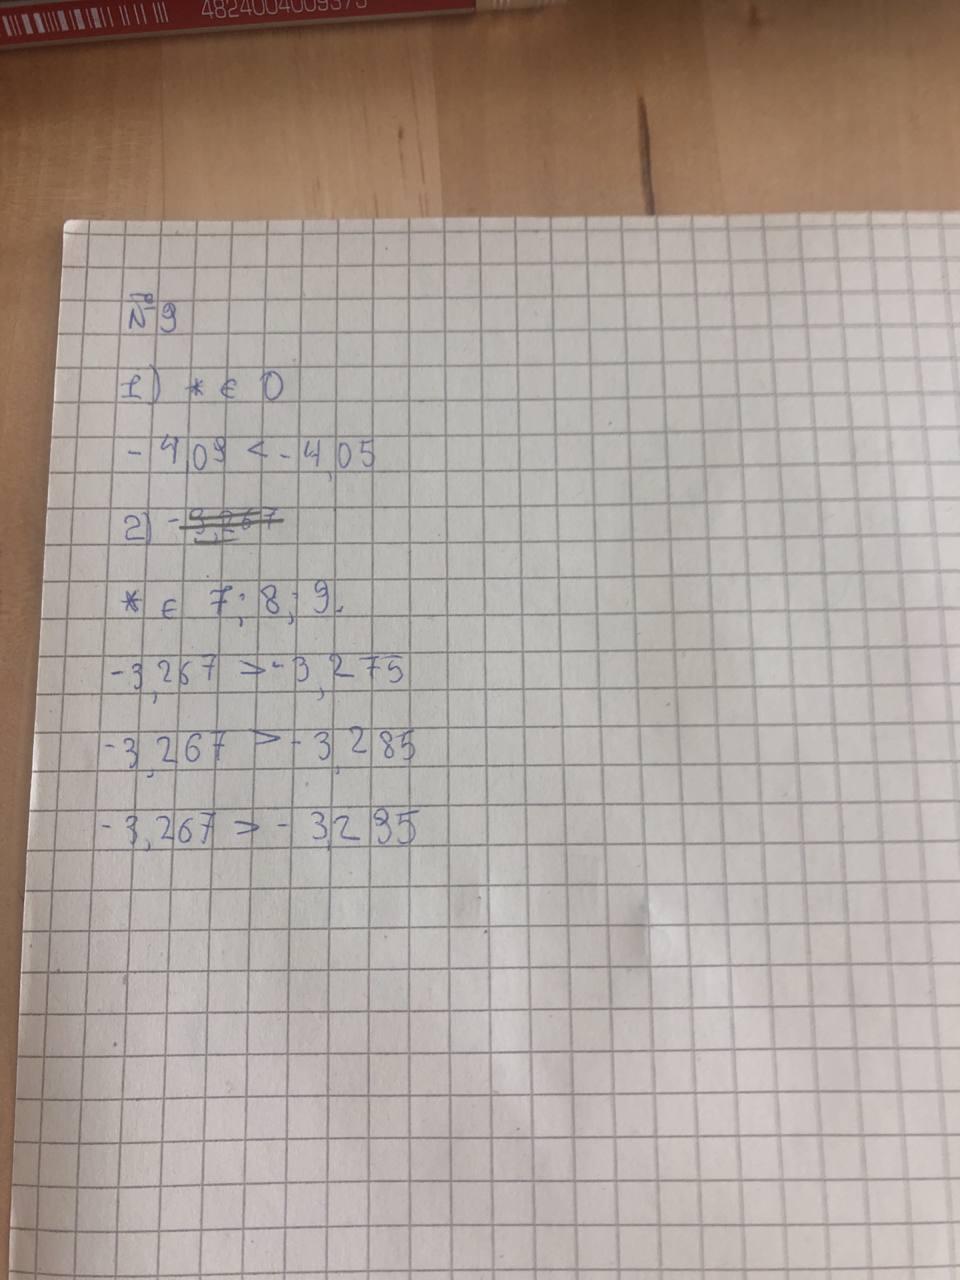 4824004009375
№9
1) * ∈ 0
- 4,09 < - 4,05
2) - 3,267
* ∈ 7; 8; 9.
-3,267 > -3,275
-3,267 > - 3,285
-3,267 > - 3,295